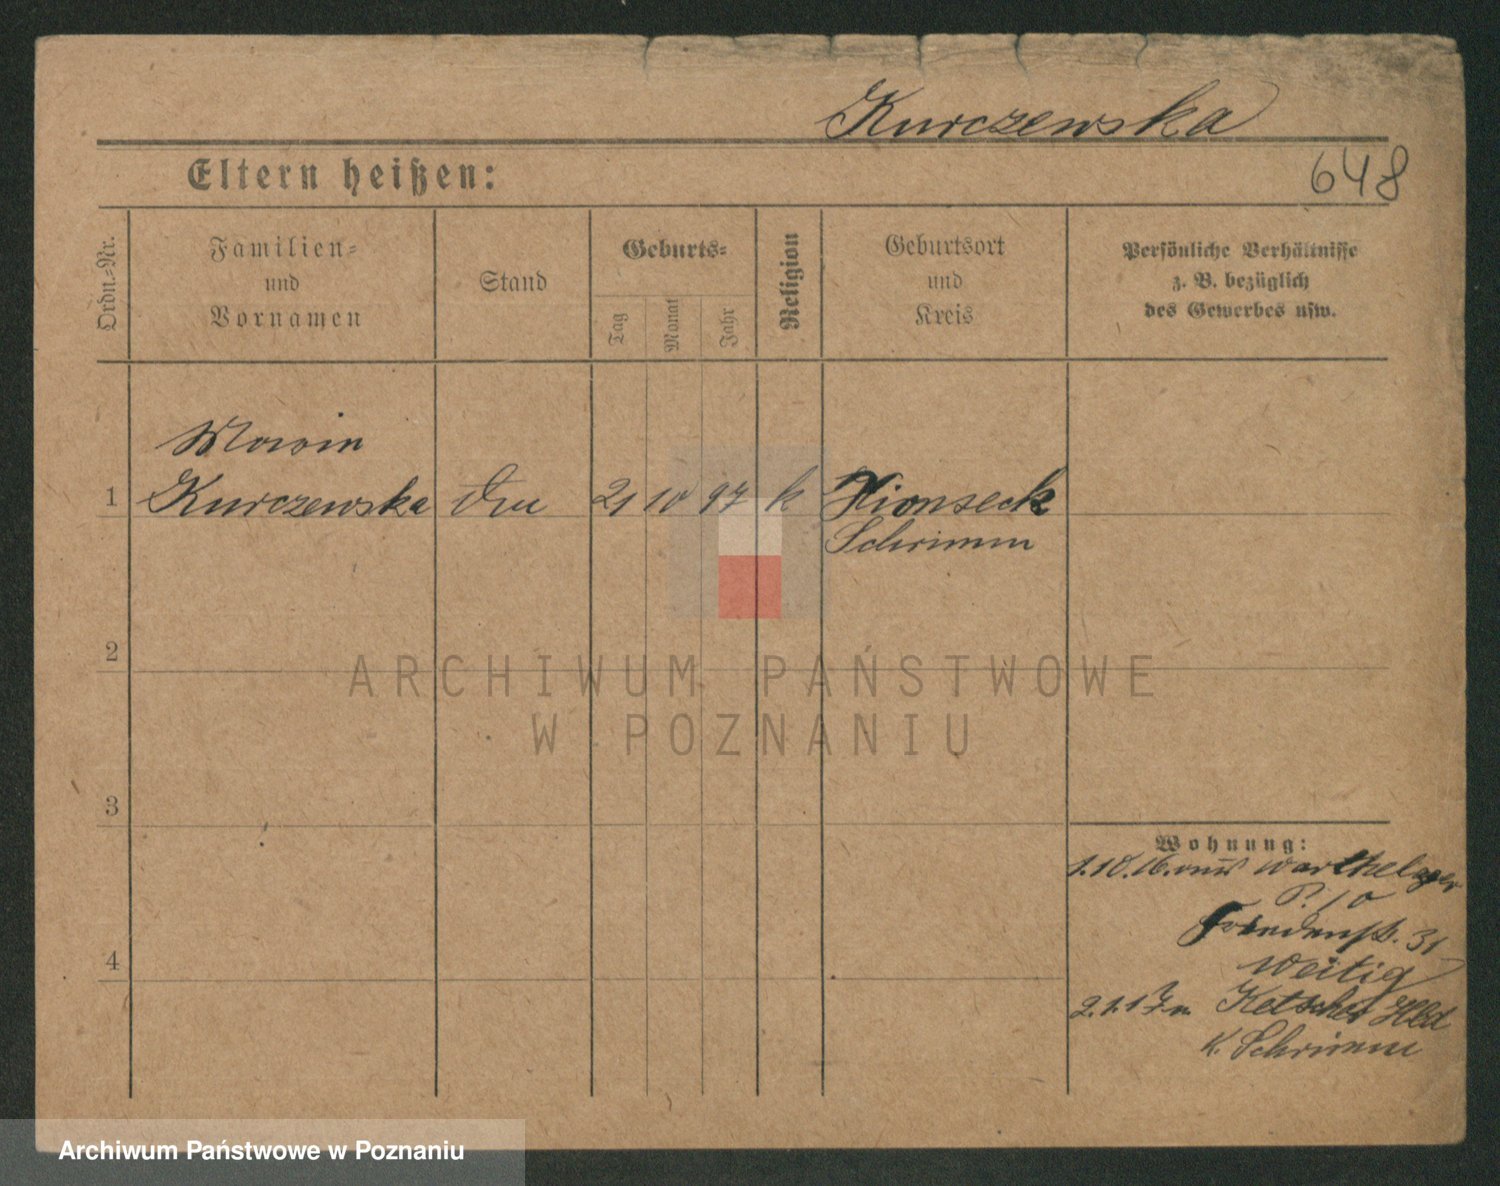 Kurczewska
648
Eltern heißen:
Ordn.=Nr.
Familien=
und
Vornamen
Stand
Geburts=
Tag
Monat
Jahr
Religion
Geburtsort
und
Kreis
Persönliche Verhältnisse
z. B. bezüglich
des Gewerbes usw.
1
Kurczewska
21 10 97 k Xionseck
Schrimm
2
3
4
Wohnung:
1.10.16. Warthelager
P. 10
Friedenstr. 31
Weitig
2.1.17 n. Hld
K. Schrimm
ARCHIWUM PAŃSTWOWE
W POZNANIU
Archiwum Państwowe w Poznaniu